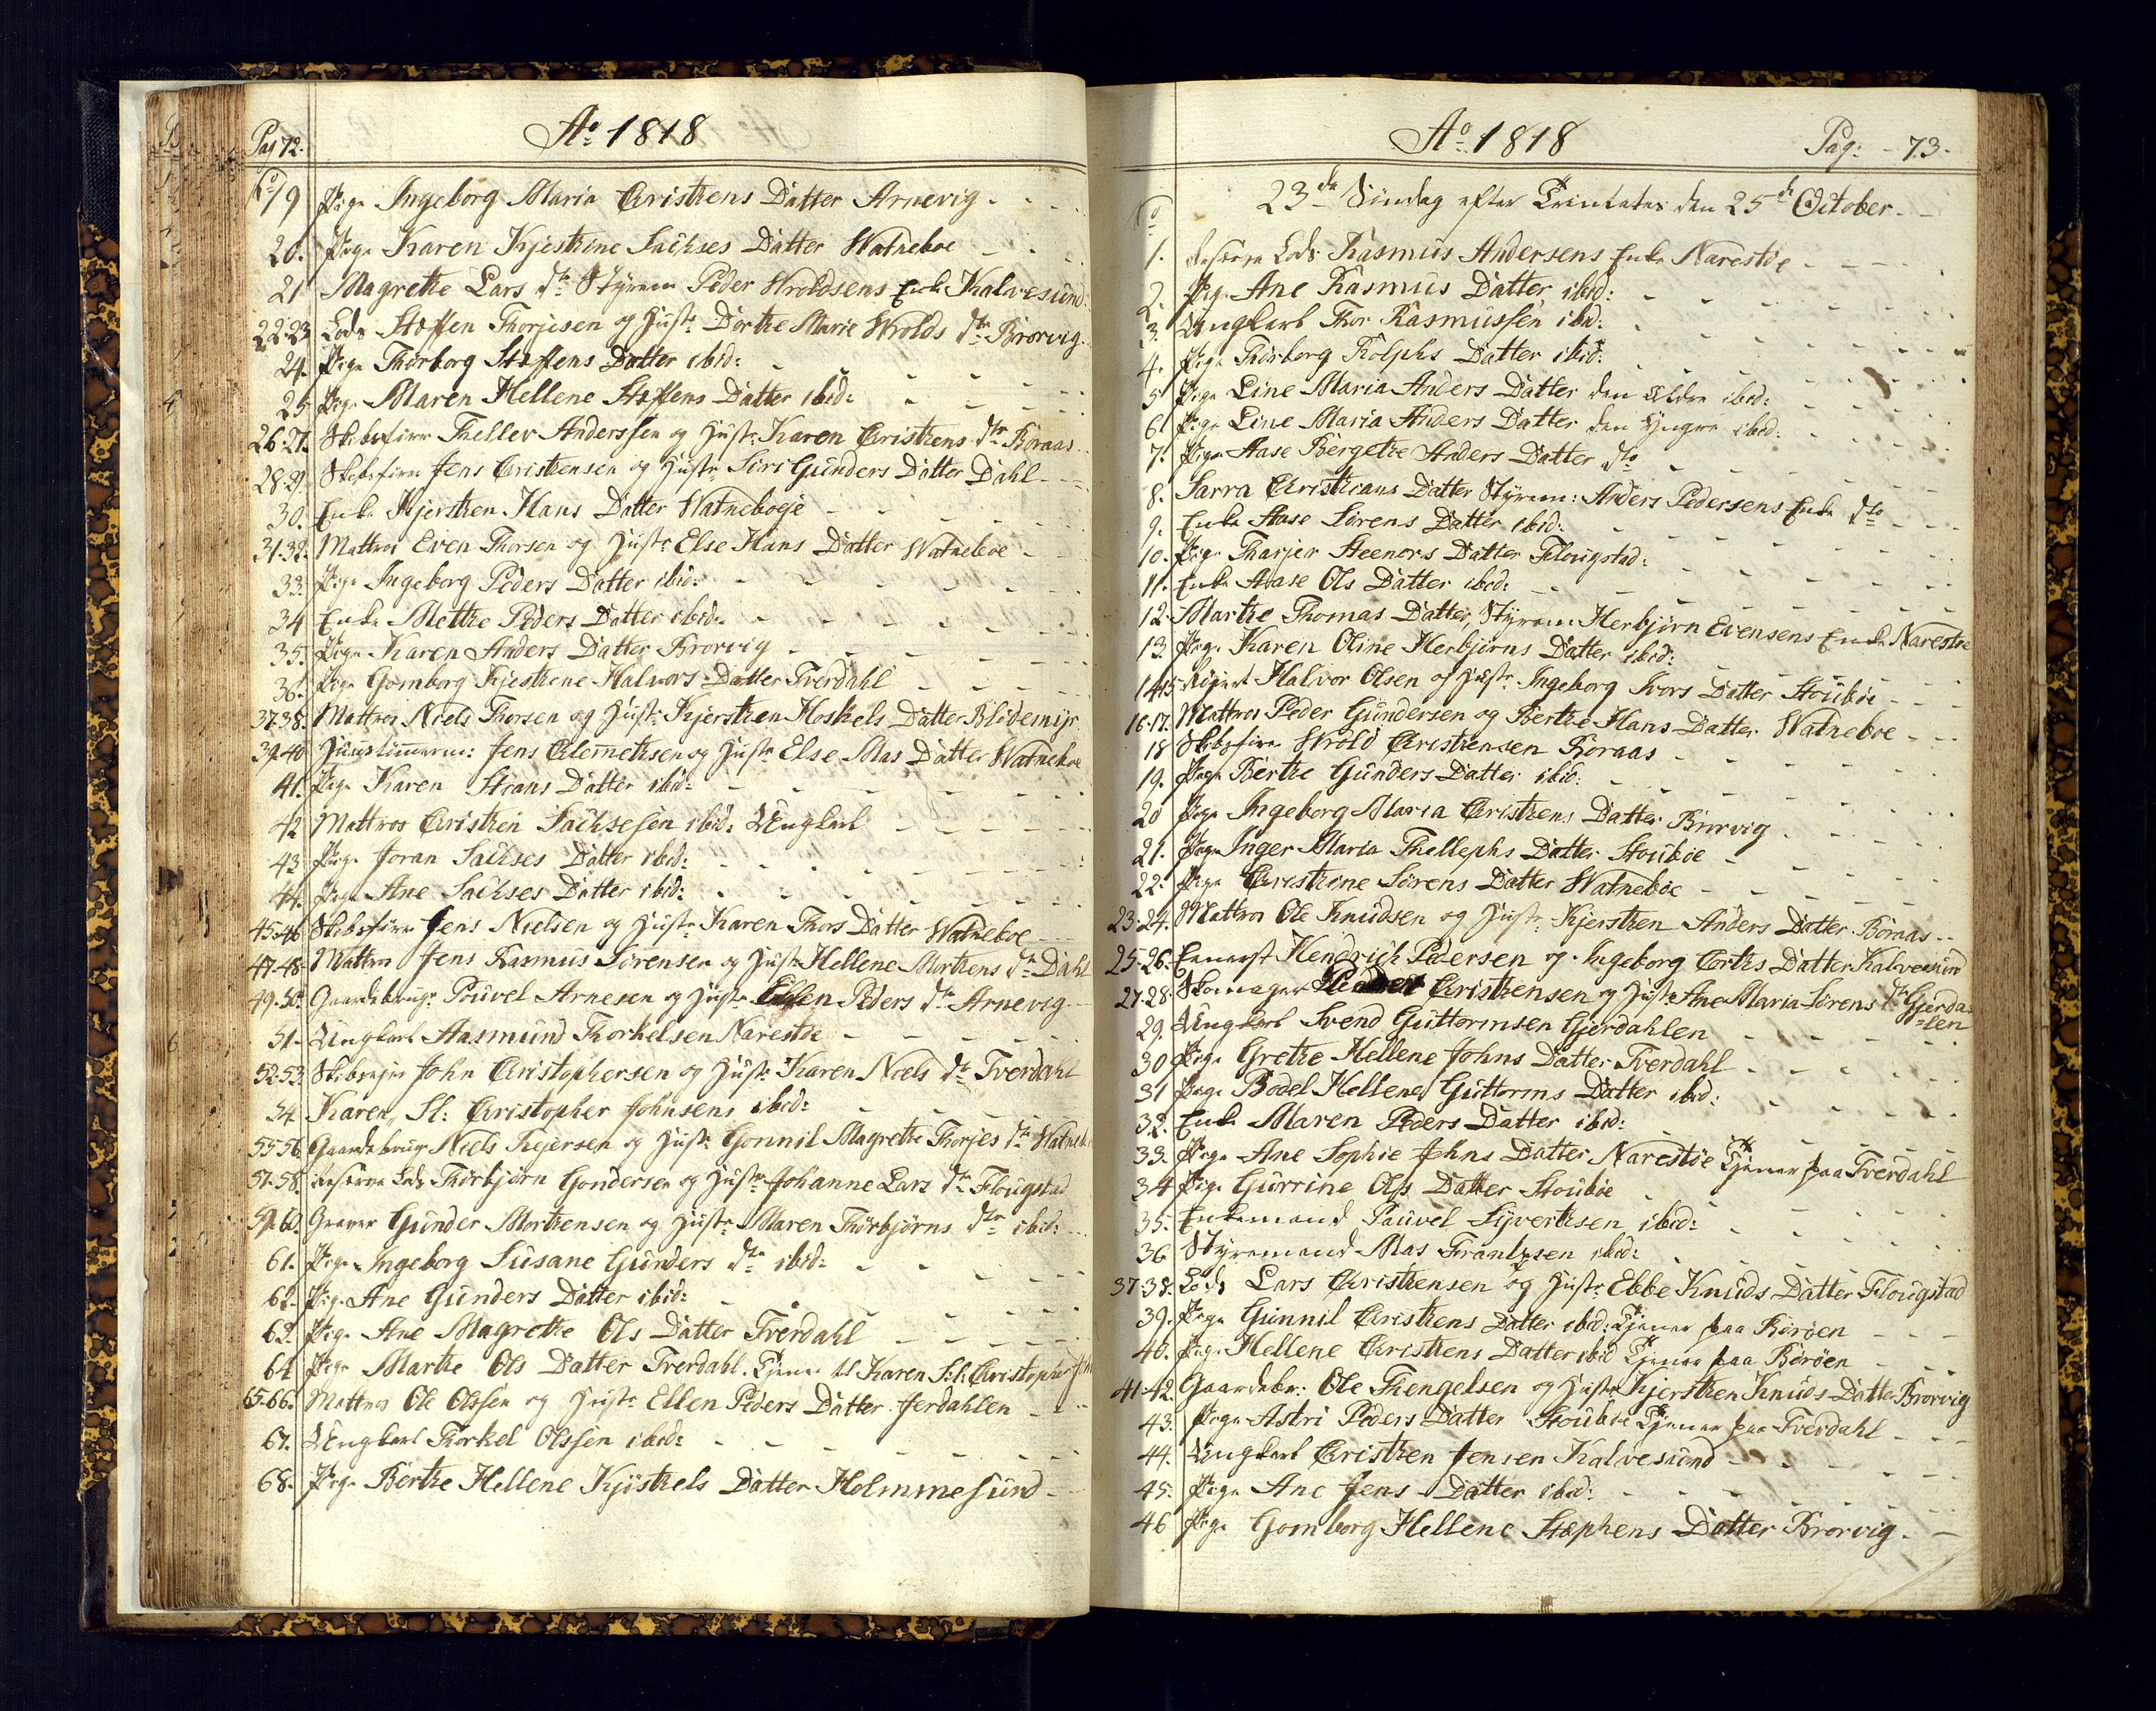 Pag 72.
Ao 1818
No 19 Pige Ingeborg Maria Christens Datter Arnevig
20. Pige Karen Kjestine Sachses Datter Watneboe
21 Magrethe Lars dtr Styrem Peder Wroldsens Enke Kalvesund
22-23 Lods Steffen Thorjesen og Hustr Dorthe Marie Wrolds dtr Brorvig
24. Pige Thorborg Steffens Datter ibid:
25 Pige Maren Hellene Steffens Datter ibid:
26-27. Skibsfører Thellev Anderssen og Hustr: Karen Christens dtr Boraas
28-29. Skibsfører Jens Christensen og Hustr Siri Gunders Datter Dahl
30. Enke Kjersthen Hans Datter Watneboge
31.32. Mattros Even Thorsen og Hustr Else Hans Datter Watneboe
33. Pige Ingeborg Peders Datter ibid:
34 Enke Methe Peders Datter ibid:
35. Pige Karen Anders Datter Brorvig
36. Pige Gomborg Kjestine Halvors Datter Tverdahl
37-38. Mattros Niels Thorsen og Hustr: Kjersthen Hoskels Datter Blødemyr
39-40 Huustimerm: Jens Clemethsen og Hustr Else Mas Datter Watneboe
41. Pige Karen Stians Datter ibid:
42 Mattros Christhen Sachsesen ibid: Ungkarl
43 Pige Joran Sachses Datter ibid:
44. Pige Ane Sachses Datter ibid:
45-46 Skibsfører Jens Nielsen og Hustr Karen Thors Datter Watneboe
47-48- Mattros Jens Rasmus Sørensen og Hustr Hellene Morthens dtr Dahl
49-50. Gaardebrugr Pouvel Arnesen og Hustr Ellen Peders dtr Arnevig
51- Ungkarl Aasmund Thorkelsen Narestøe
52-53. Skibsejer John Christophersen og Hustr: Karen Niels dtr Tverdahl
54. Karen, Sl: Christopher Johnsens ibid:
55-56 Gaardebrugr Niels Kejersen og Hustr Gonnil Magrethe Thorjes dtr
57-58. Reserve Lods Thorbjørn Gondersen og Hustr Johanne Lars dtr Flougstad
59-60. Graver Gunder Morthensen og Hustr Maren Thorbjørns dtr ibid:
61. Pige Ingeborg Susane Gunders dtr ibid:
62. Pige Ane Gunders Datter ibid:
63. Pige Ane Magrethe Ols Datter Tverdahl
64 Pige Marthe Ols Datter Tverdahl. Tjener til Karen Sl: Christopher
65-66. Mattros Ole Olssen og Hustr Ellen Peders Datter Jerdahlen
67. Ungkarl Thorkel Olssen ibid:
68. Pige Berthe Hellene Kjøsthels Datter Holmmesund
Ao 1818
Pag: 73
23de Søndag efter Trinitates den 25de October
No
1. Reserve Lods Rasmus Andersens Enke Narestøe
2. Pige Ane Rasmus Datter ibid:
3. Ungkarl Thor Rasmussen ibid:
4. Pige Thorborg Rolphs Datter ibid:
5 Pige Line Maria Anders Datter den Eldre ibid:
6. Pige Line Maria Anders Datter den Yngre ibid:
7. Pige Aase Bergethe Anders Datter dto
8. Sarra Christians Datter Styrem: Anders Pedersens Enke dto
9. Enke Aase Sørens Datter ibid:
10. Pige Tharjer Steenors Datter Flougstad:
11. Enke Aase Ols Datter ibid:
12. Marthe Thomas Datter, Styrem Herbjørn Evensens Enke Narestøe
13 Pige Karen Oline Herbjørns Datter ibid:
14-15 Halvor Olsen og Hustr Ingeborg Ivors Datter Stouböe
16-17. Mattros Peder Gundersen og Berthe Hans Datter Watneboe
18 Skibsfører Wrold Christhensen Boraas
19. Pige Berthe Gunders Datter ibid:
20 Pige Ingeborg Maria Christhens Datter Brorvig
21. Pige Inger Maria Thellephs Datter Stouböe
22. Pige Christhine Sørens Datter Watneböe
23-24. Mattros Ole Knudsen og Hustr Kjersthen Anders Datter Boraas
25-26. Hendrich Pedersen og Ingeborg Datter Kalvesund
27-28. Skomager Christhensen og Hustr Ane Maria Sørens dtr Gjerda-
29. Ungkarl Svend Guttormsen Gjerdahlen -len
30 Pige Grethe Hellene Johns Datter Tverdahl
31 Pige Bodel Hellene Guttorms Datter ibid:
32. Enke Maren Peders Datter ibid:
33. Pige Ane Sophie Johns Datter Narestøe Tjener paa Tverdahl
34 Pige Gurrine Ols Datter Stouböe
35. Enkemand Pauvel Sijverthsen ibid:
36 Styremand Mas Frantzsen ibid:
37-38. Lods Lars Christhensen og Hustr Ebbe Knuds Datter Flougstad
39. Pige Gunnil Christhens Datter ibid: Tjener paa Borøen
40. Pige Hellene Christhens Datter ibid Tjener paa Borøen
41-42. Gaardebr: Ole Thengelsen og Hustr Kjersthen Knuds Datter Brorvig
43. Pige Astri Peders Datter Stouböe Tjener paa Tverdahl
44. Ungkarl Christhen Jensen Kalvesund
45. Pige Ane Jens Datter ibid:
46 Pige Gomborg Hellene Stephens Datter Brorvig.